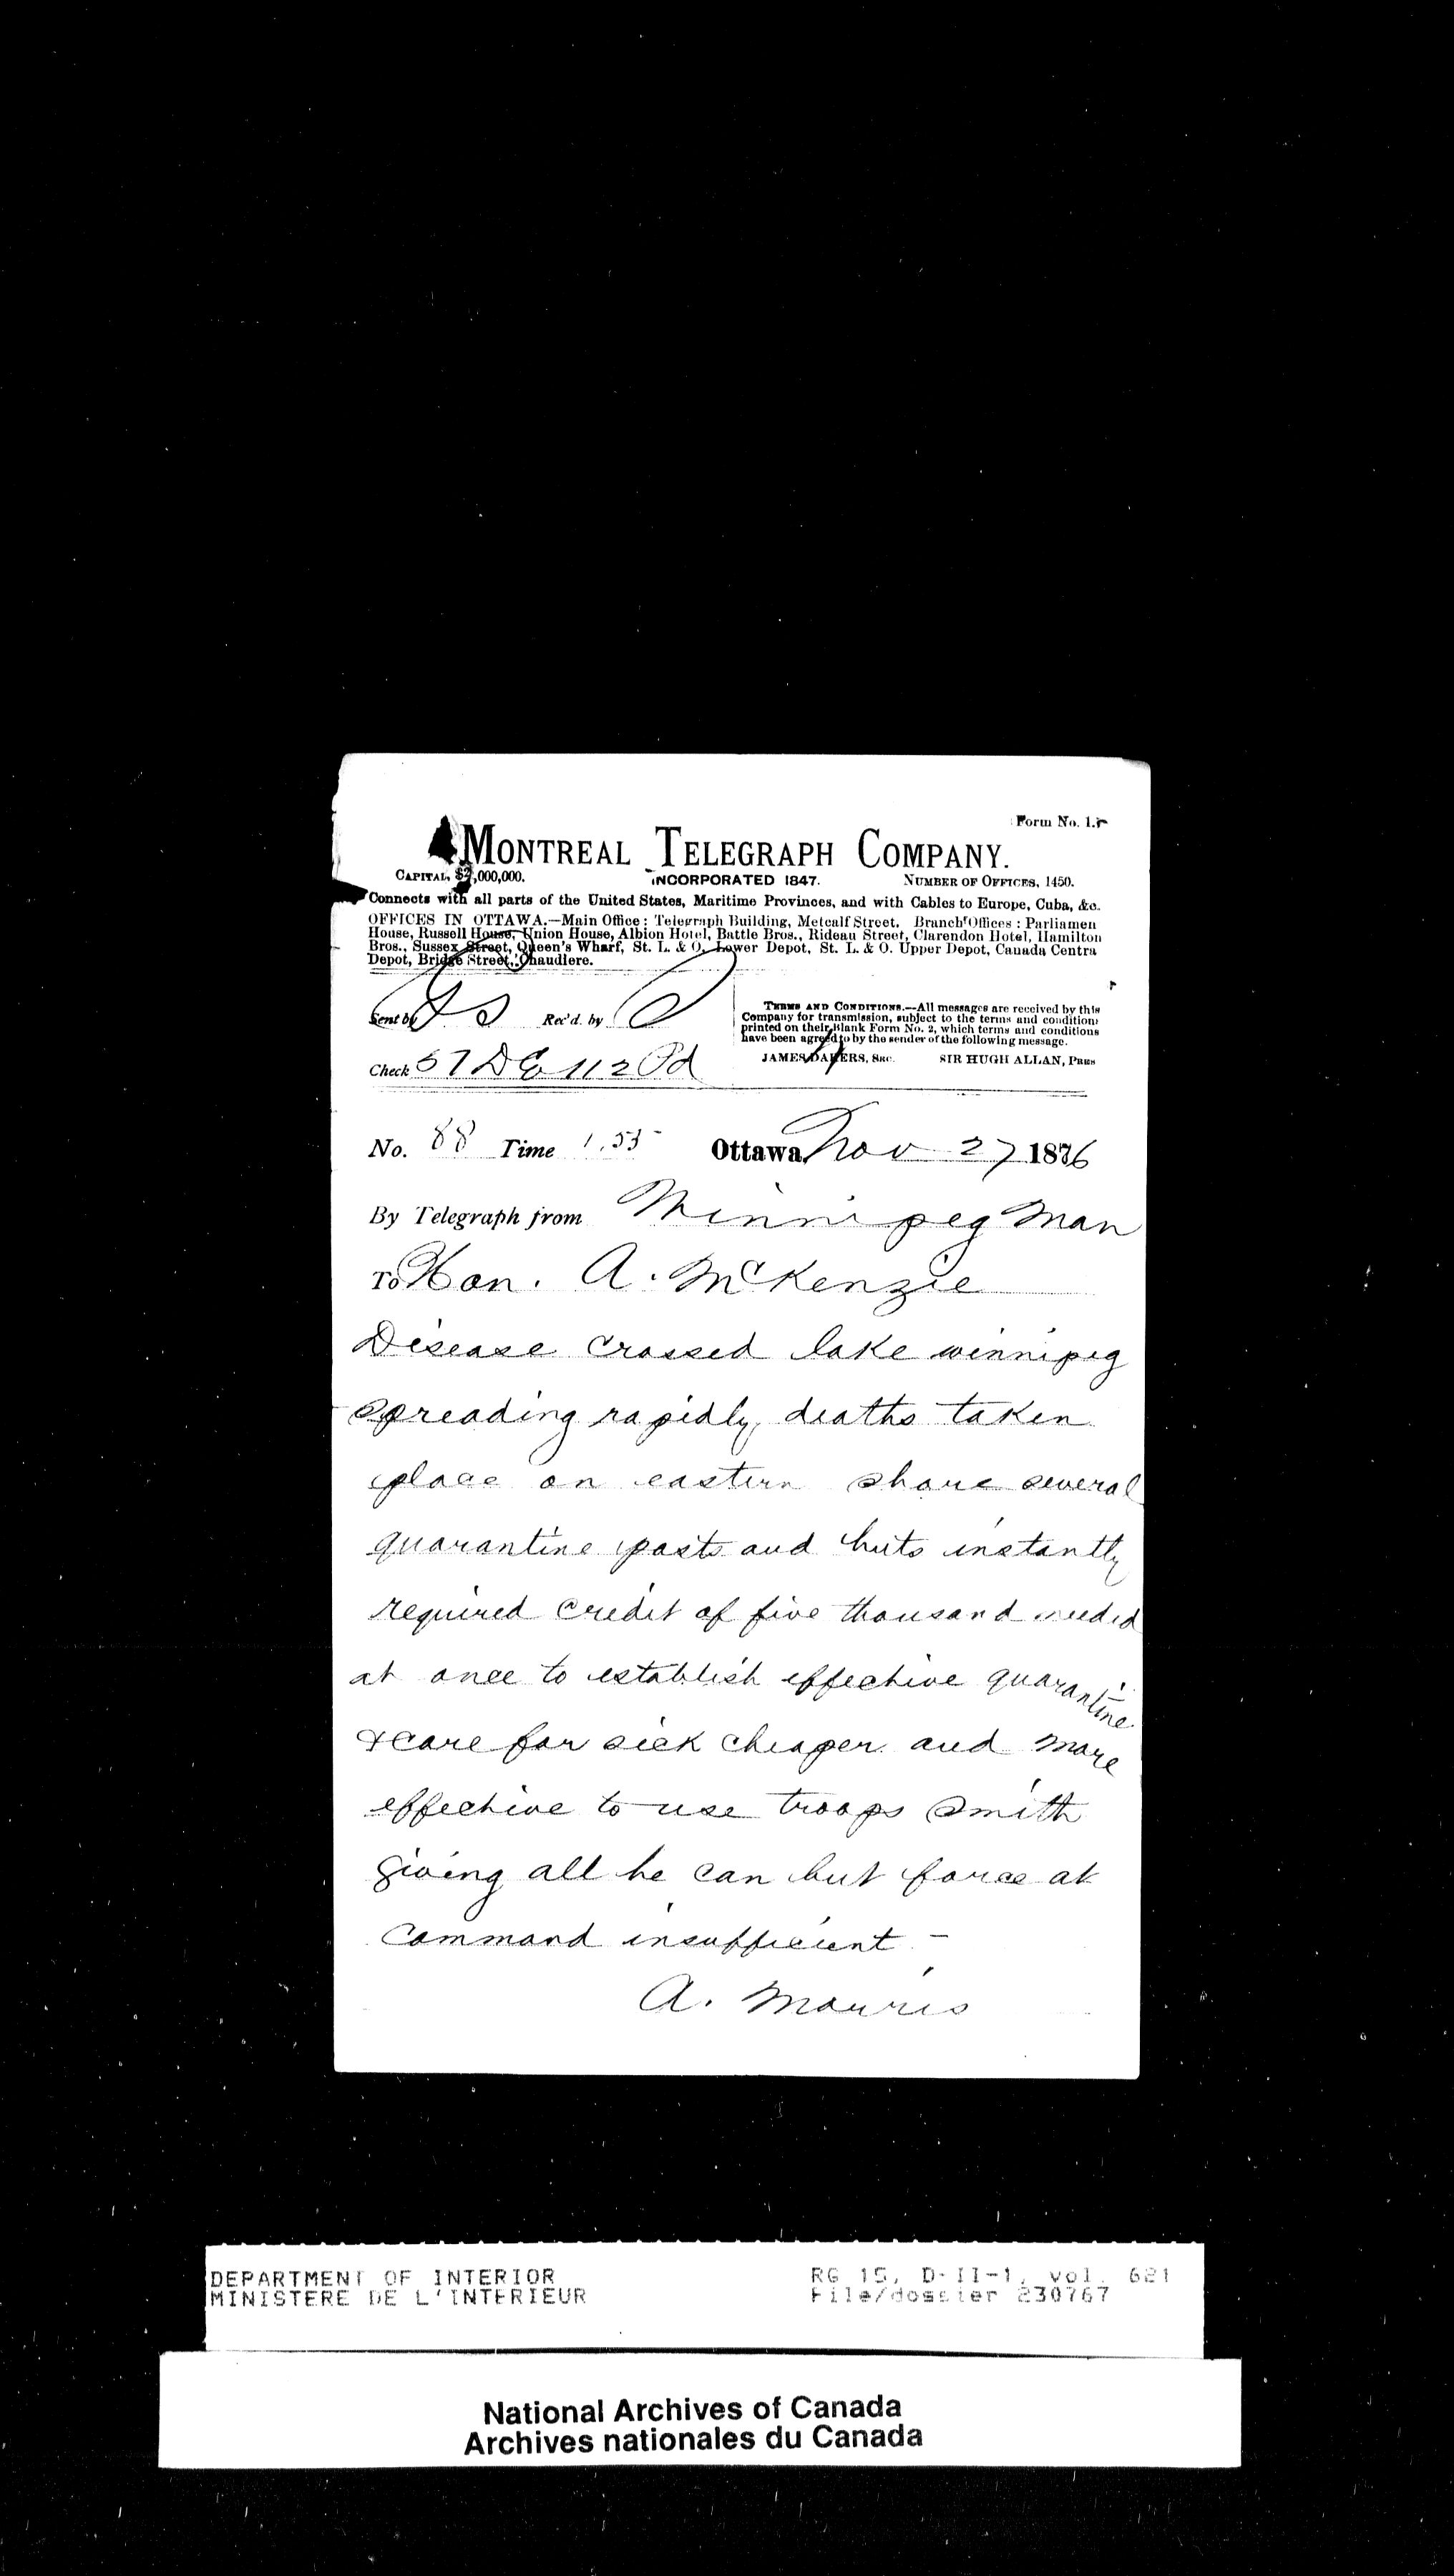 Form No. 1.
MONTREAL TELEGRAPH COMPANY.
CAPITAL, $2,000,000. INCORPORATED 1847. NUMBER OF OFFICES, 1450.
Connects with all parts of the United States, Maritime Provinces, and with Cables to Europe, Cuba, &c.
OFFICES IN OTTAWA.—Main Office: Telegraph Building, Metcalf Street. Branch Offices: Parliamen
House, Russell House, Union House, Albion Hotel, Battle Bros., Rideau Street, Clarendon Hotel, Hamilton
Bros., Sussex Street, Queen's Wharf, St. L. & O. Lower Depot, St. L. & O. Upper Depot, Canada Centra
Depot, Bridge Street, Chaudiere.
TERMS AND CONDITIONS.—All messages are received by this
Company for transmission, subject to the terms and conditions
printed on their Blank Form No. 2, which terms and conditions
have been agreed to by the sender of the following message.
JAMES DAKERS, SEC. SIR HUGH ALLAN, PRES
Sent by Rec'd. by
Check 57 DE 112 Pd
No. 88 Time 1.55 Ottawa, Nov 27 1876
By Telegraph from Winnipeg Man
To Hon. A. McKenzie
Disease crossed lake winnipeg
spreading rapidly, deaths taken
place on eastern shore several
quarantine posts and huts instantly
required credit of five thousand needed
at once to establish effective quarantine
& care for sick cheaper and more
effective to use troops Smith
giving all he can but force at
command insufficient -
A. Morris
DEPARTMENT OF INTERIOR RG 15, D-II-1, vol. 621
MINISTERE DE L'INTERIEUR File/dossier 230767
National Archives of Canada
Archives nationales du Canada